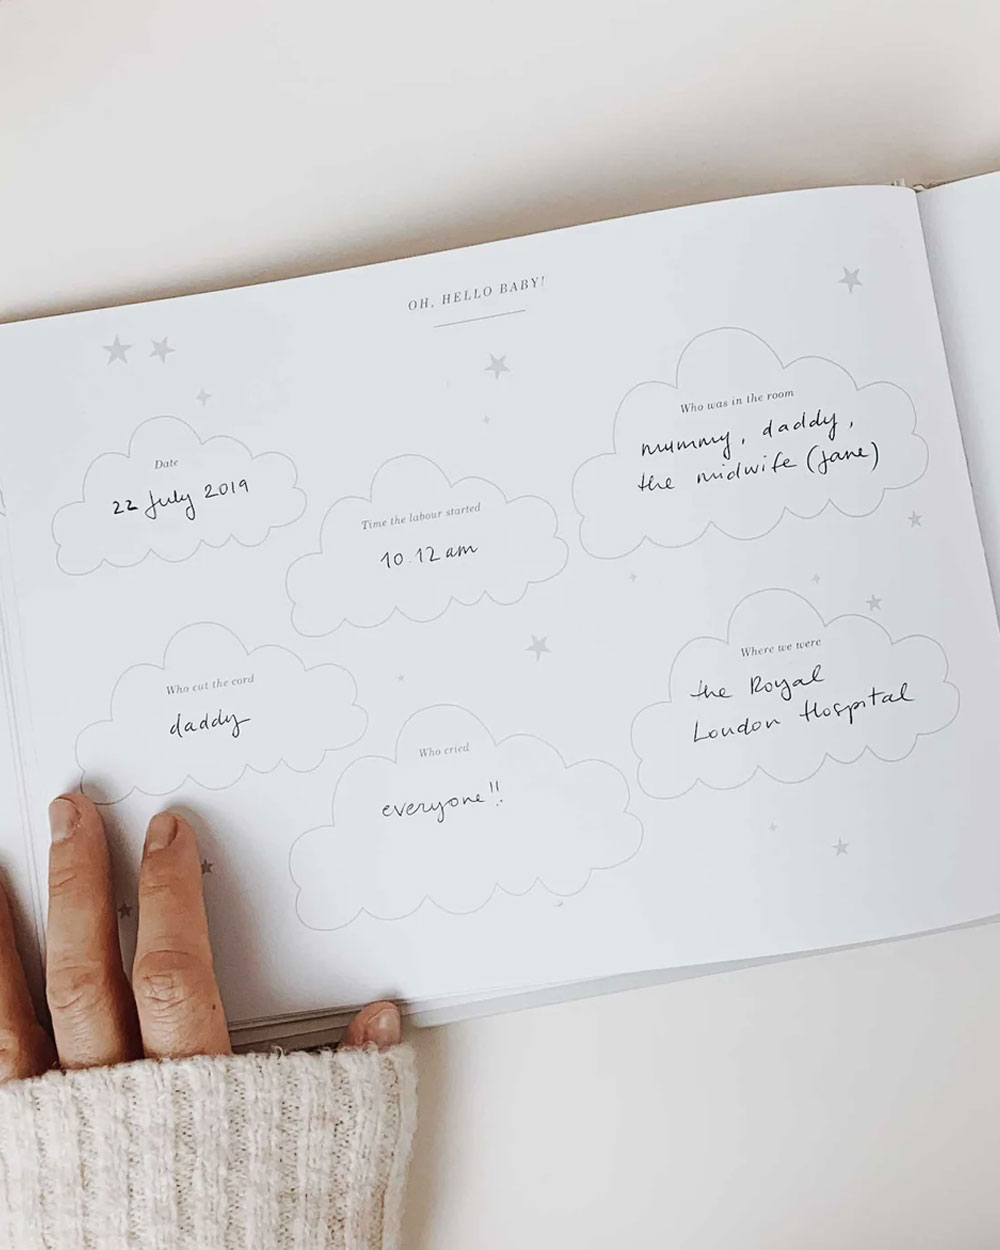 OH, HELLO BABY!
Date
22 July 2019
Time the labour started
10.12 am
Who was in the room
mummy, daddy,
the midwife (Jane)
Who cut the cord
daddy
Who cried
everyone!!
Where we were
the Royal
London Hospital